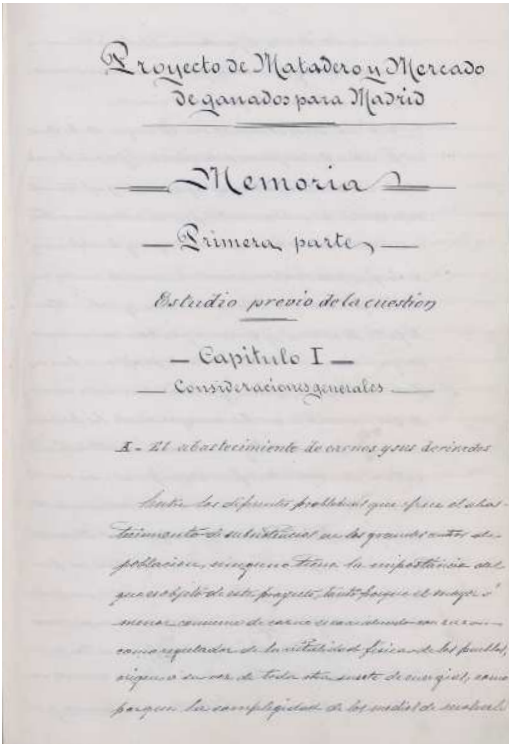 Proyecto de Matadero y Mercado
de ganados para Madrid
Memoria
Primera parte
Estudio previo de la cuestión
Capitulo I
Consideraciones generales
A - El abastecimiento de carnes y sus derivados
Entre los diferentes problemas que ofrece el abas-
tecimiento de subsistencias en los grandes centros de
población, ninguno tiene la importancia del
que es objeto de este proyecto, tanto porque el mayor ó
menor consumo de carne es considerado con razon
como regulador de la vitalidad fisica de los pueblos,
origen á su vez de toda otra suerte de energias, como
porque la complegidad de los medios de